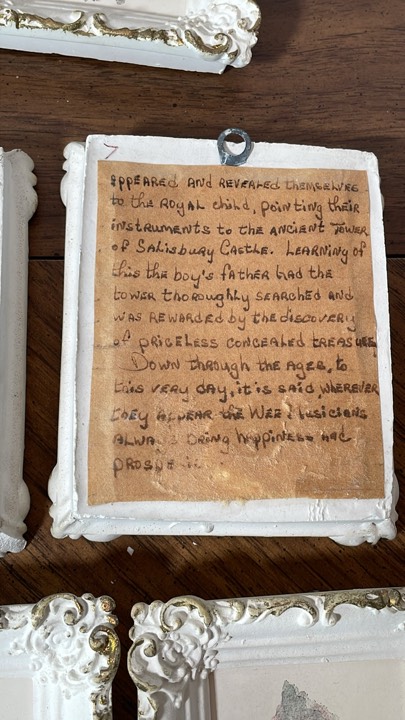 7
APPEARED AND REVEALED themselves
to the ROYAL child, pointing their
instruments to the ANCIENT TOWER
of SALISbURY CASTLE. LEARNING of
this the boy's fATHER had the
tower thoroughly seARChed ANd
WAS REWARDED by the discovery
of PRICELESS CONCEALED TREASURE.
Down through the AGES, to
this very day, it is said, wherever
they APPEAR the Wee Musicians
ALWAYS bring happiness and